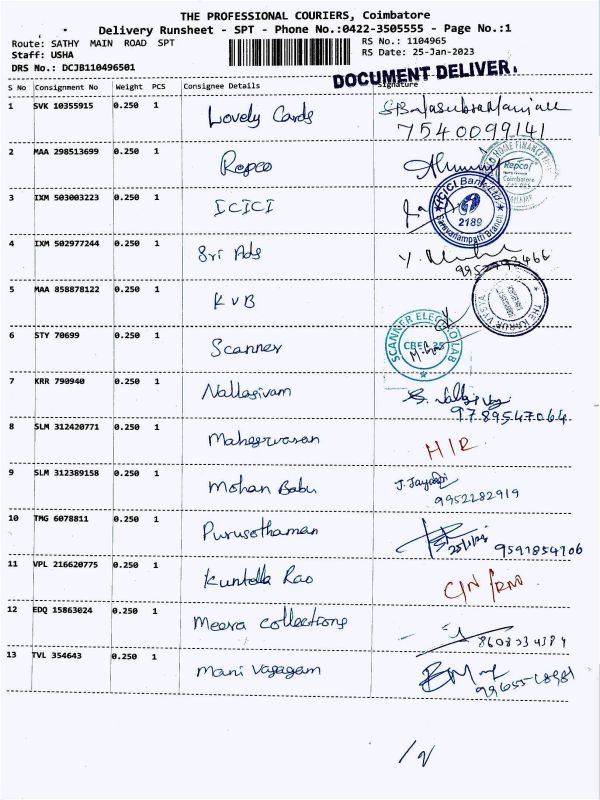 THE PROFESSIONAL COURIERS, Coimbatore
Delivery Runsheet - SPT - Phone No.:0422-3505555 - Page No.:1
Route: SATHY MAIN ROAD SPT
RS No.: 1104965
Staff: USHA
RS Date: 25-Jan-2023
DRS No.: DCJB110496501
DOCUMENT DELIVER.
S No Consignment No Weight PCS Consignee Details Signature
1 SVK 10355915 0.250 1 Lovely Cards
7540099141
2 MAA 298513699 0.250 1 Repco
HOME FINANCE
Repco
Coimbatore
3 IXM 503003223 0.250 1 ICICI
ICICI Bank Ltd.
2189
Saravanampatti Branch
4 IXM 502977244 0.250 1 Sri Ads
5 MAA 858878122 0.250 1 KVB
THE KARUR VYSYA
6 STY 70699 0.250 1 Scanner
SCANNER ELECTRO LAB
CBE-35
7 KRR 790940 0.250 1 Nallasivam
9789547064
8 SLM 312420771 0.250 1 Maheswaran
H/R
9 SLM 312389158 0.250 1 Mohan Babu
9952282919
10 TMG 6078811 0.250 1 Purusothaman
9591854706
11 VPL 216620775 0.250 1 Kuntella Rao
C/N/RNO
12 EDQ 15863024 0.250 1 Meera Collections
13 TVL 354643 0.250 1 Mani Vasagam